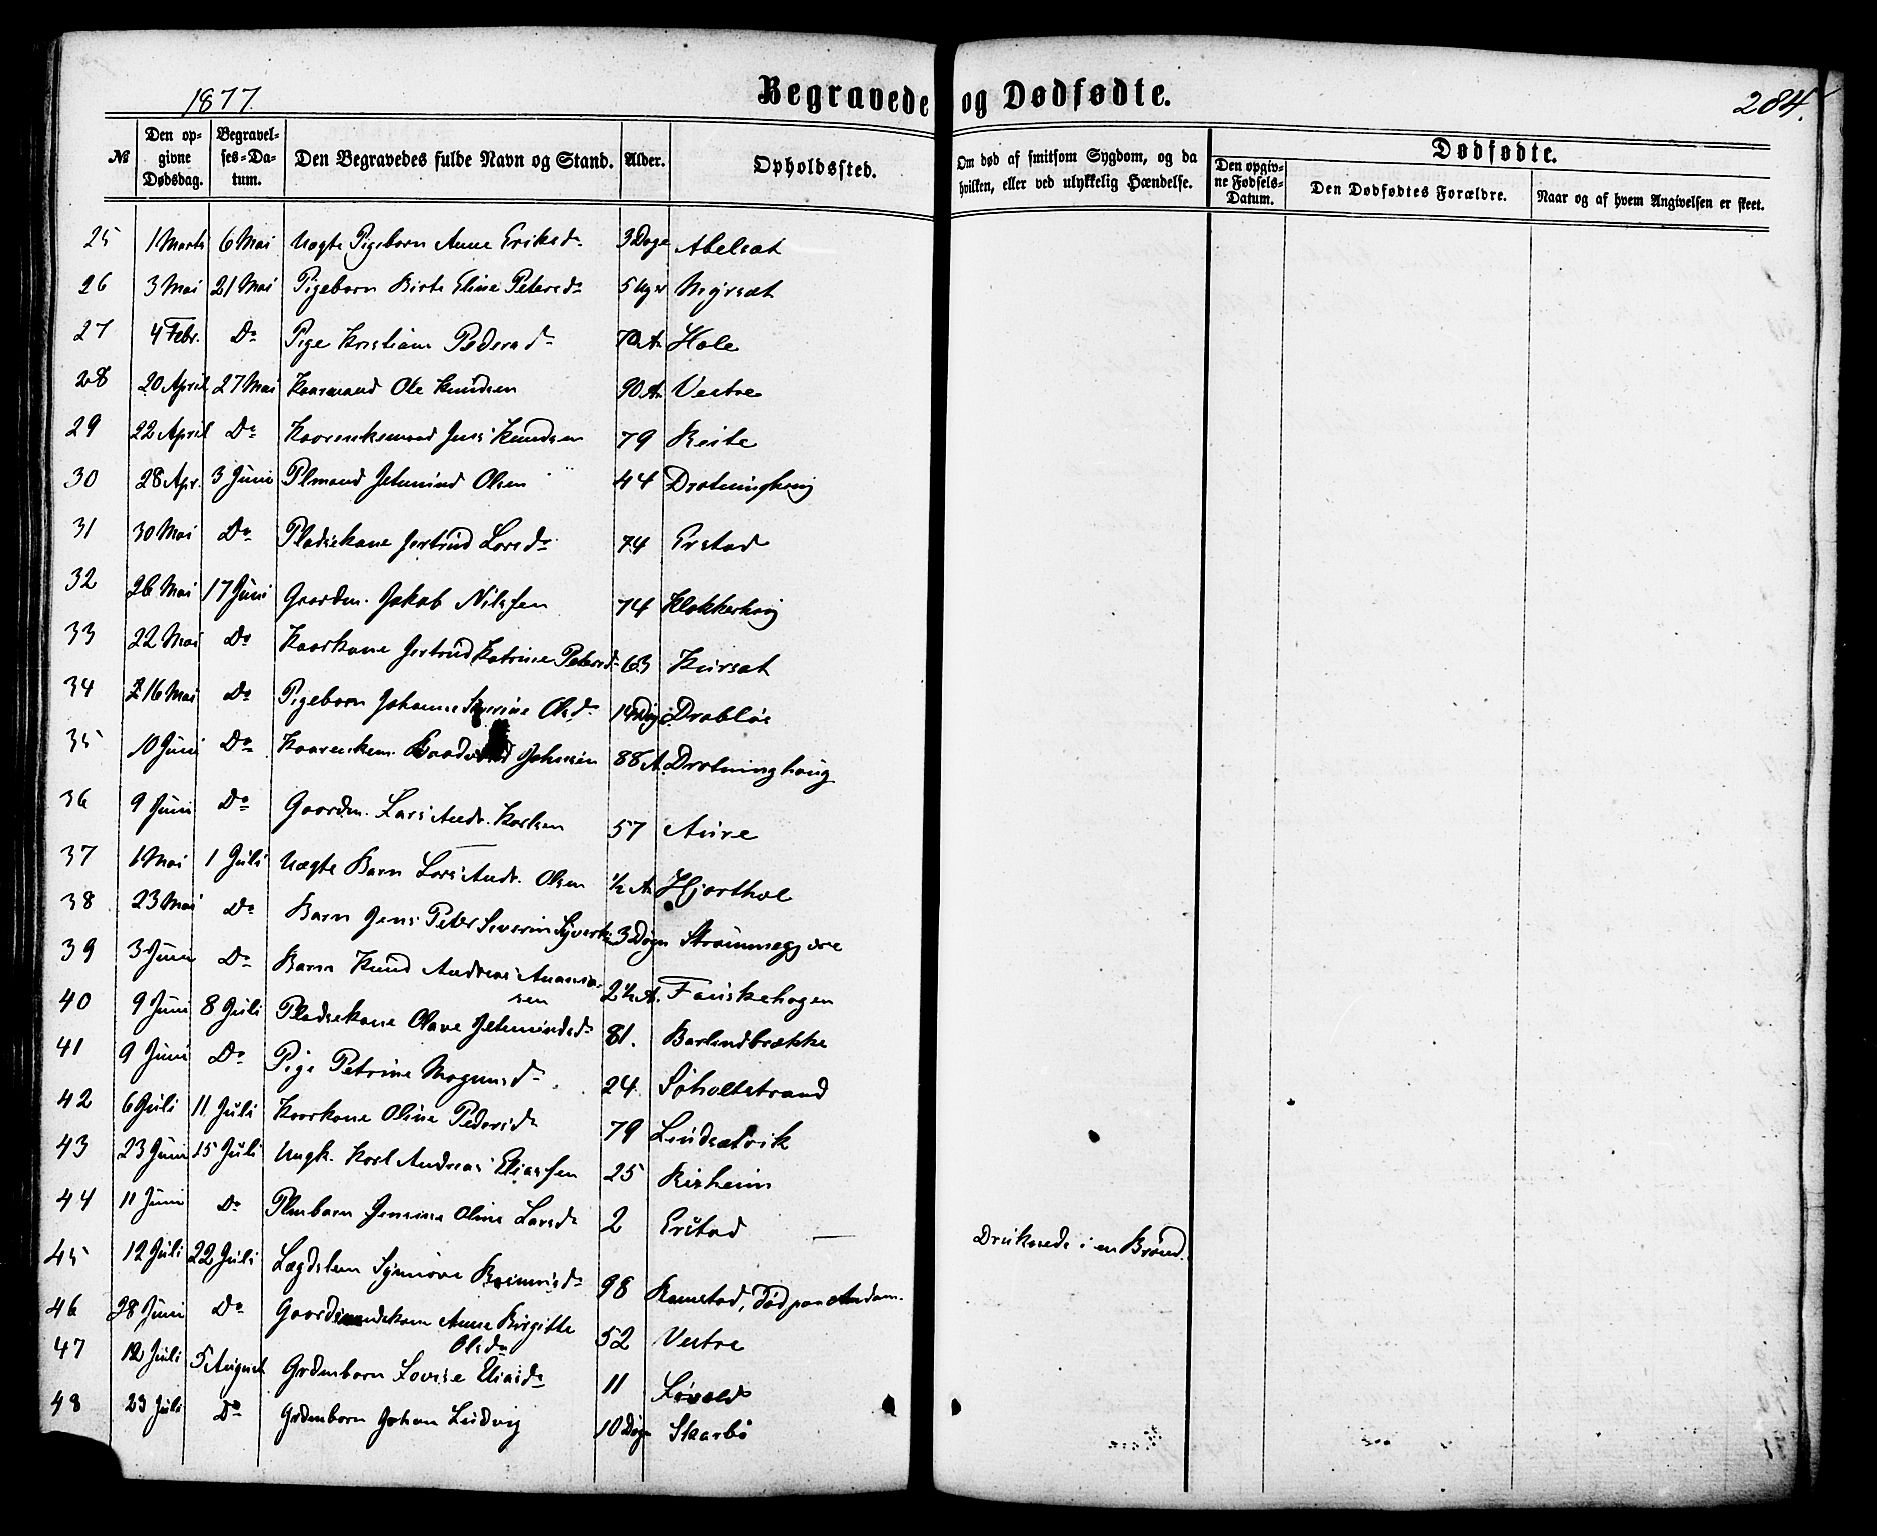 1877.
Begravede og Dødfødte.
284.
№
Den opgivne Dødsdag.
Begravelses-Datum.
Den Begravedes fulde Navn og Stand.
Alder.
Opholdssted.
Om død af smitsom Sygdom, og da hvilken, eller ved ulykkelig Hændelse.
Dødfødte.
Den opgivne Fødsels-Datum.
Den Dødfødtes Forældre.
Naar og af hvem Angivelsen er skeet.
25 1 Marts 6 Mai Uægte Pigebarn Anne Eriksdr 3 Dage Abelsæt
26 3 Mai 21 Mai Pigebarn Birte Eline Petersdr 5 Uger Myrsæt
27 4 Febr. Do Pige Kristiane Pedersdr Hole
28 20 April 27 Mai Kaarmand Ole Knudsen 90 A Vestre
29 22 April Do Kaarenkemand Jens Knudsen 79 Reite
30 28 Apr. 3 Juni Plmand Jetmund Olsen 44 Drotninghoug
31 30 Mai Do Pladsekane Gertrud Larsdr 74 Erstad
32 26 Mai 17 Juni Gaardm. Jakob Nilssen 74 Klokkerhoug
33 22 Mai Do Kaarkone Gertrud Katrine Petersdr 63 Kursæt
34 16 Mai Do Pigebarn Johanne Severine Olsdr 14 Dage Drabløs
35 10 Juni Do Kaarenkem. Johnsen 88 A. Drotninghoug
36 9 Juni Do Gaardm. Lars Andr. Karlsen 57 Aure
37 1 Mai 1 Juli Uægte Barn Lars Andr. Olsen ½ A Hjorthol
38 23 Mai Do Barn Jens Peter Severin Syverts. 3 Døgn Strømmegjære
39 3 Juni Do Barn Knud Andreas Ananiassen 2½ A. Fauskehagen
40 9 Juni 8 Juli Pladsekone Olave Jetmundsdr 81. Barlindbrække
41 9 Juni Do Pige Petrine Mogensdr 24. Søholtstrand
42 6 Juli 11 Juli Kaarkone Oline Pedersdr 79 Lindsætvik
43 23 Juni 15 Juli Ungk. Karl Andreas Eliassen 25 Riksheim
44 11 Juni Do Plmbarn Jensine Oline Larsdr 2 Erstad Druknede i en Brønd.
45 12 Juli 22 Juli Lægdslem Synnøve 98 Ramstad, død paa Andam.
46 28 Juni Do Gaardmandskone Anne Birgitte Olsdr 52 Vestre
47 12 Juli 5 August Grdmbarn Lovise Eliasdr 11 Løvold
48 23 Juli Do Grdmbarn Johan Ludvig 10 Døgn Skarbø